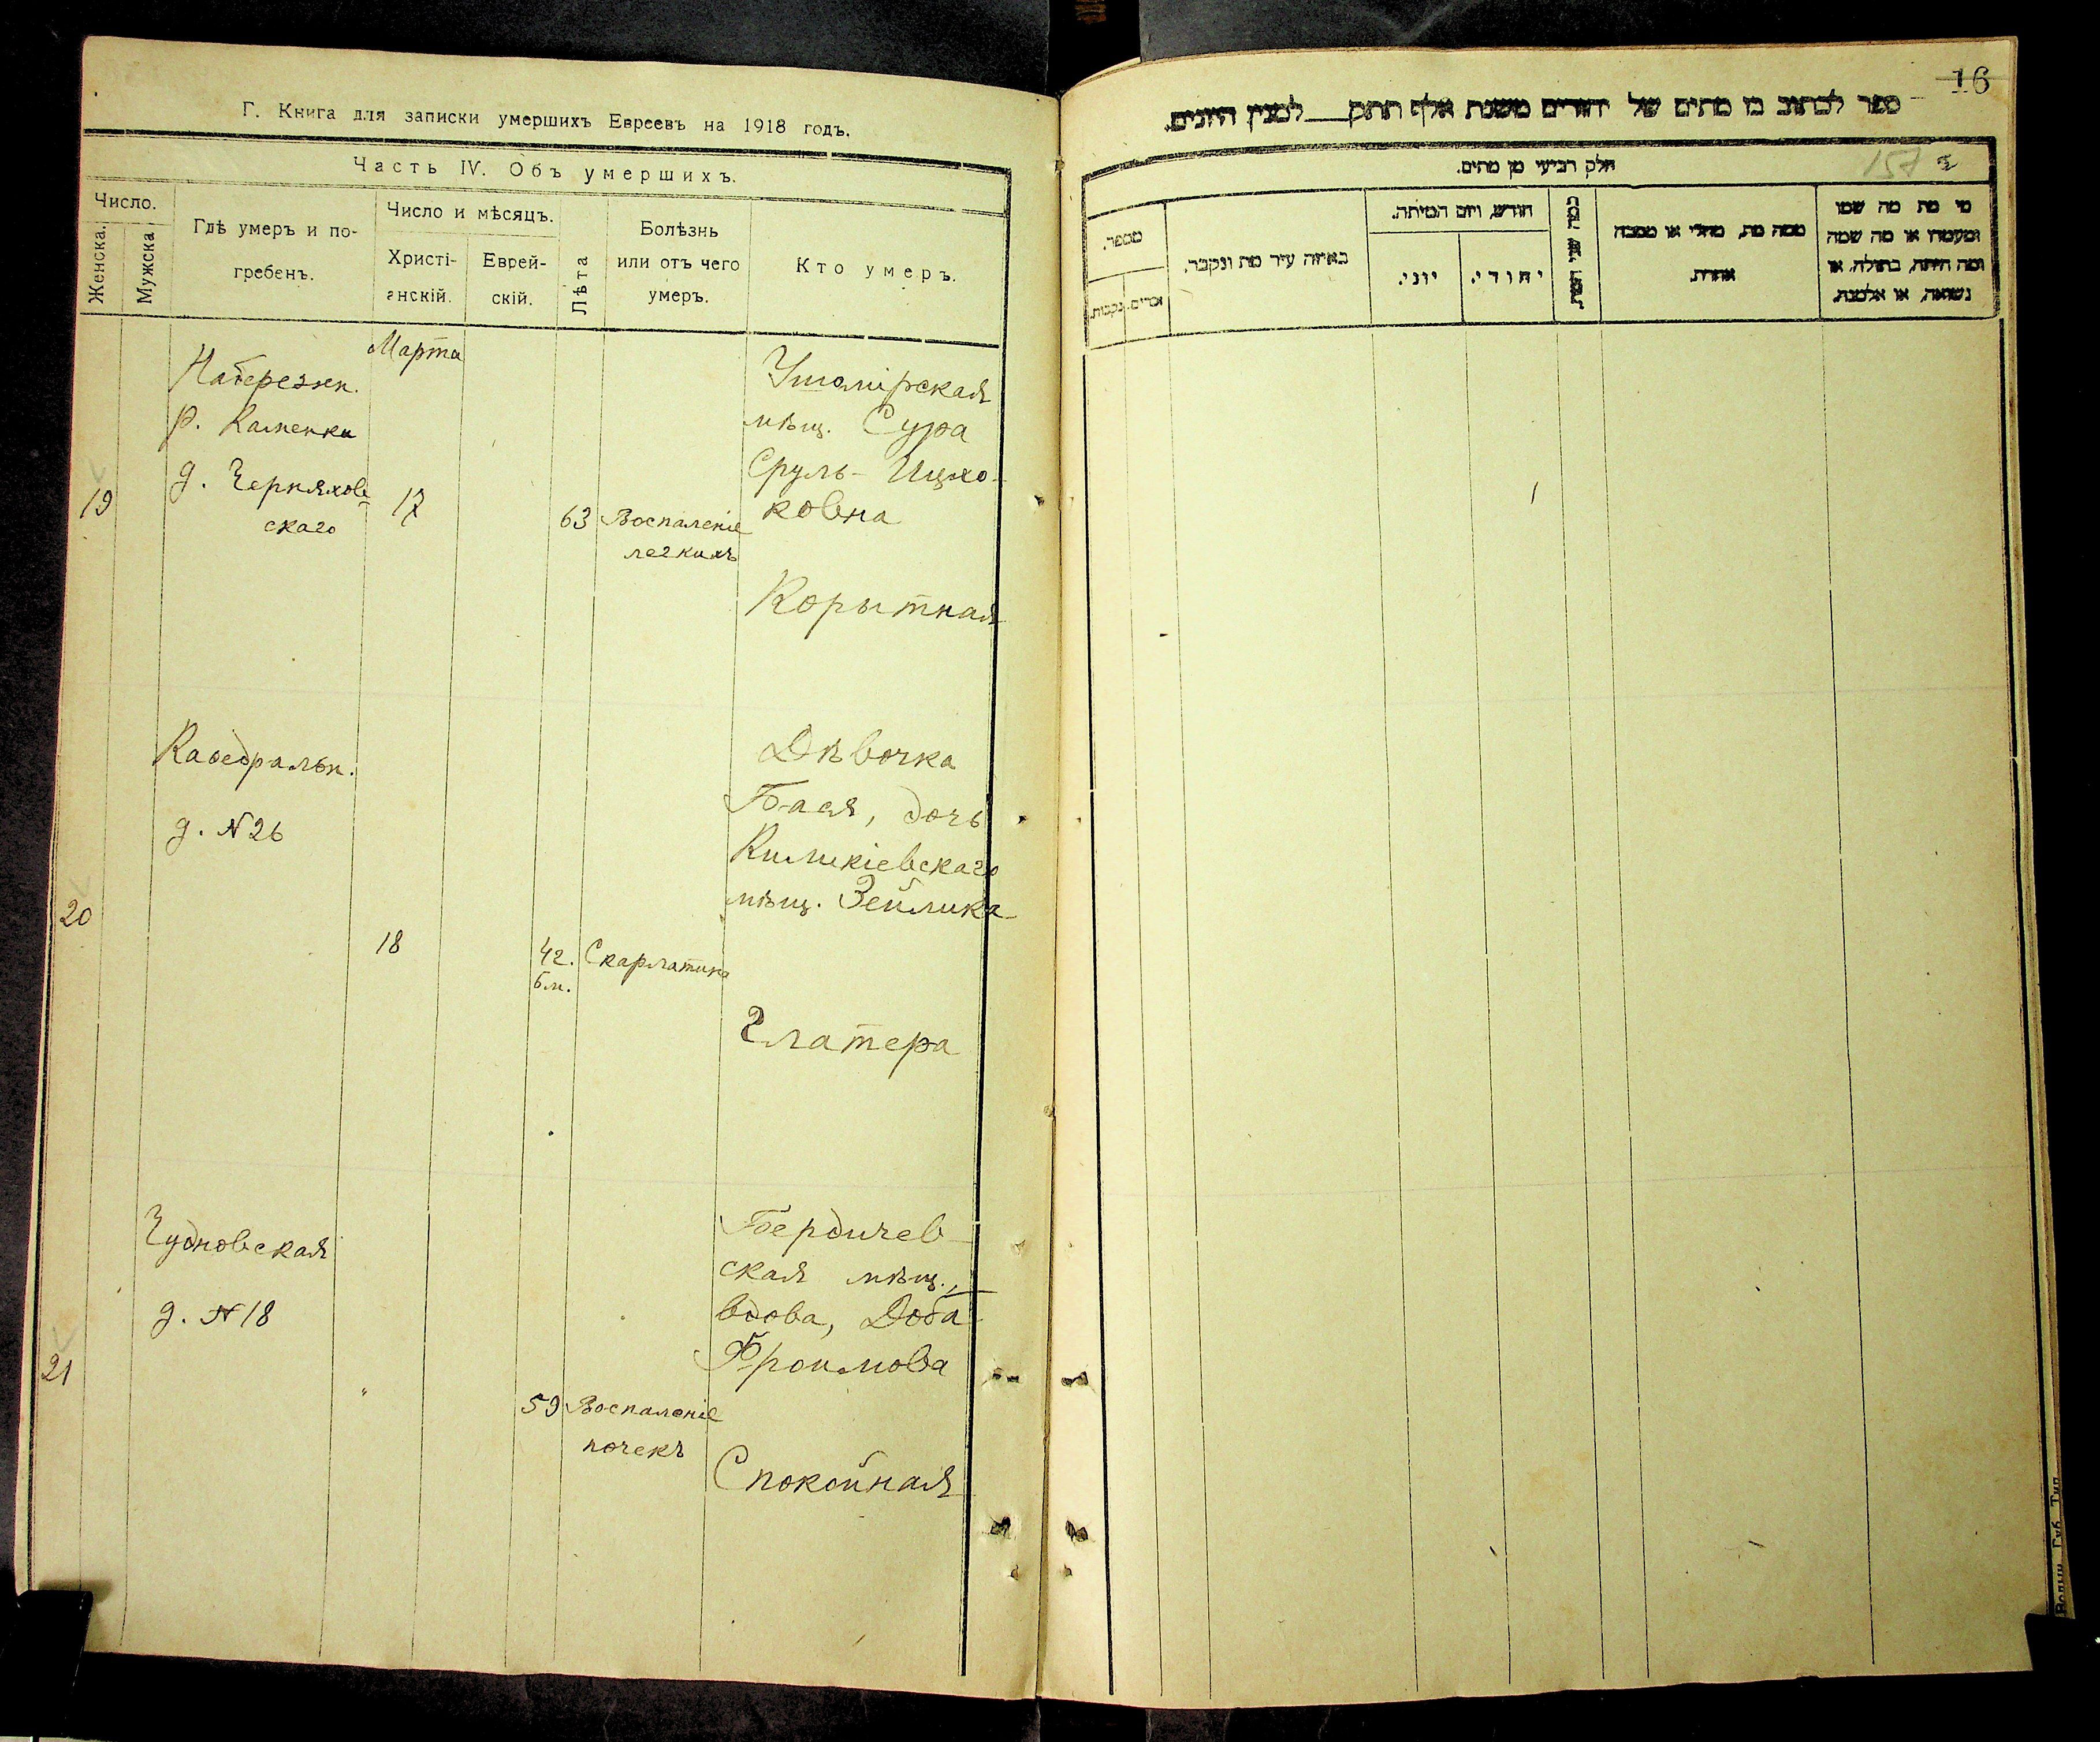 Г. Книга для записки умершихъ Евреевъ на 1918 годъ.
Часть IV. Объ умершихъ.
Число.
Женска.
Мужска.
Гдѣ умеръ и по-
гребенъ.
Число и мѣсяцъ.
Христі-
анскій.
Еврей-
скій.
Лѣта
Болѣзнь
или отъ чего
умеръ.
Кто умеръ.
19
Набережн.
р. Каменки
д. Черняхов-
скаго
Марта
17
63
Воспаленіе
легкихъ
Ушомірская
мѣщ. Сура
Сруль-Ицко-
ковна
Корытная
20
Каѳедральн.
д. №26
18
Скарлатина
Дѣвочка
Бася, дочь
мѣщ. Зейлика
Глатера
21
Чудновская
д. №18
"
59
Воспаленіе
почекъ
Бердичев-
ская мѣщ.,
вдова, Доба
Фроимова
Спокойная
16
ספר לכתוב בו מתים של יהודים משנת אלף תתק___ למנין היונים.
חלק רביעי מן מתים.
157
מספר.
זכרים.
נקבות.
באיזה עיר מת ונקבר.
חודש, ויום המיתה.
יוני.
יהודי.
ממה מת, מחלי או מסבה
אחרת.
מי מת מה שמו
ומעמדו או מה שמה
ומה היתה, בתולה, או
נשואה, או אלמנה.